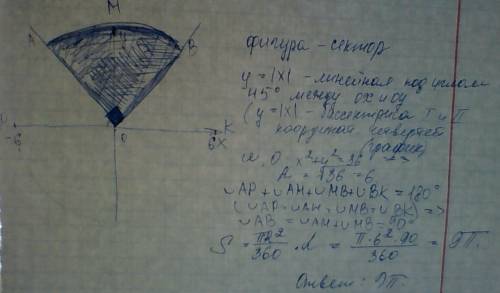 M
A
B
P
K
-6
O
6
X
фигура – сектор
y = |x| – линейная под углом
45° между ox и oy
(y = |x| – биссектриса I и II
координат. четвертей
(график)
x²+y²=36
R = √36 = 6
∪AP + ∪AM + ∪MB + ∪BK = 180°
(∪AP = ∪AM = ∪MB = ∪BK) =>
∪AB = ∪AM + ∪MB = 90°
S = πR²/360 · α = π·6²·90/360 = 9π
Ответ: 9π.